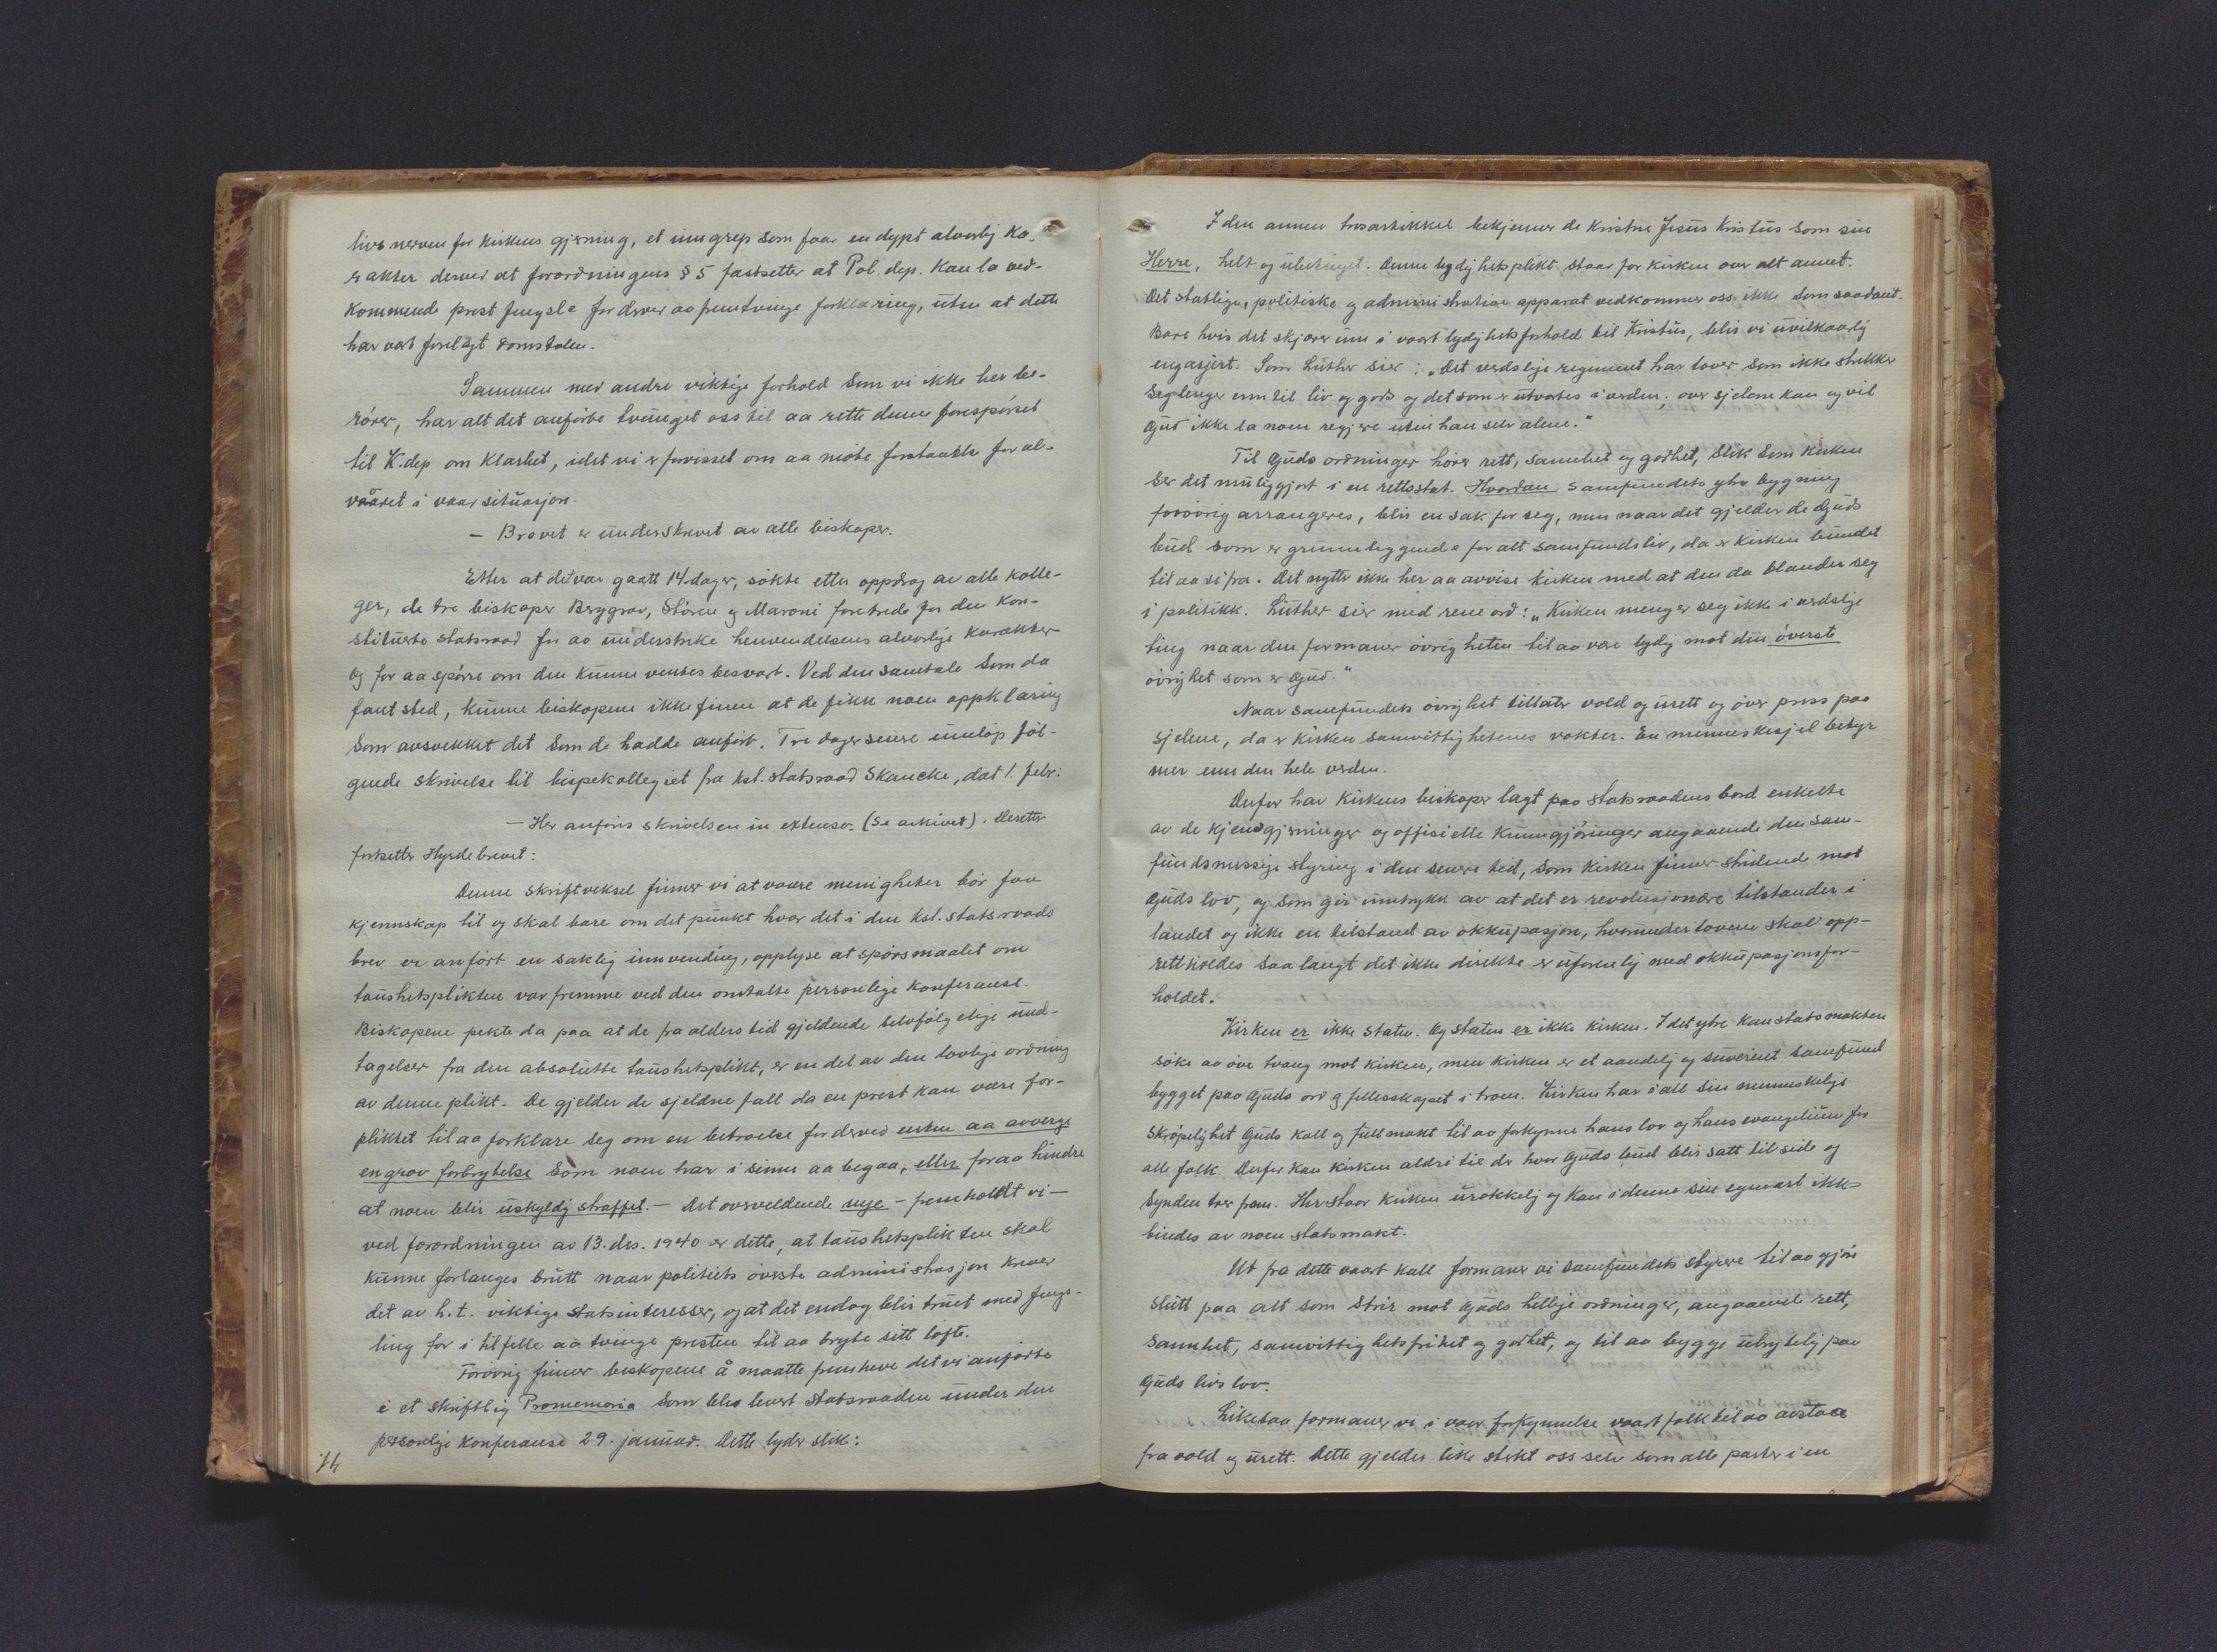 livsnerven for kirkens gjerning, et inngrep som faar en dypt alvorlig ka-
rakter derved at forordningens § 5 fastsetter at Pol. dep. kan la ved-
kommende prest fengsle for derver aa fremtvinge forklaring, uten at dette
har vært forelagt domstolen.
Sammen med andre viktige forhold som vi ikke her be-
rörer, har alt det anförte tvunget oss til aa rette denne forespörsel
til K.dep om klarhet, idet vi er forvisset om aa möte forstaaelse for al-
voret i vaar situasjon.
- Brevet er underskrevet av alle biskoper.
Etter at det var gaatt 14 dager, sökte etter oppdrag av alle kolle-
ger, de tre biskoper Berggrav, Stören og Maroni foretrede for den kon-
stituerte statsraad for aa understreke henvendelsens alvorlige karakter
og for aa spörre om den kunne ventes besvart. Ved den samtale som da
fant sted, kunne biskopene ikke finne at de fikk noen oppklaring
som avsvekket det som de hadde anfört. Tre dager senere innlöp föl-
gende skrivelse til bispekollegiet fra kst. statsraad Skancke, dat 1. febr:
- Her anföris skrivelsen in extenso. (Se arkivet). Deretter
fortsetter Hyrdebrevet:
Denne skriftveksel finner vi at vaare menigheter bör faa
kjennskap til og skal bare om det punkt hvor det i den kst. statsraads
brev er anfört en saklig innvending, opplyse at spörsmaalet om
taushetsplikten var fremme ved den omtalte personlige konferanse.
Biskopene pekte da paa at de fra alders tid gjeldende selvfölgelige und-
tagelser fra den absolutte taushetsplikt, er en del av den lovlige ordning
av denne plikt. De gjelder de sjeldne fall da en prest kan være for-
pliktet til aa forklare seg om en betroelse for derved enten aa avverge
en grov forbrytelse som noen har i sinne aa begaa, eller for aa hindre
at noen blir uskyldig straffet. - Det overveldende nye - fremholdt vi -
ved forordningen av 13. des. 1940 er dette, at taushetsplikten skal
kunne forlanges brutt naar politiets överste administrasjon krever
det av h.t. viktige statsinteresser, og at det endog blir truet med fengs-
ling for i tilfelle aa tvinge presten til aa bryte sitt löfte.
Forövrig finner biskopene å maatte fremheve det vi anförte
i et skriftlig Promemoria som blev levert statsraaden under den
personlige konferanse 29. januar. Dette lyder slik:
14
I den annen trosartikkel bekjenner de kristne Jesus Kristus som sin
Herre, helt og ubetinget. Denne lydighetsplikt staar for kirken over alt annet.
Det statlige, politiske og administrative apparat vedkommer oss ikke som saadant.
Bare hvis det skjærer inn i vaart lydighetsforhold til Kristus, blir vi uvilkaarlig
engasjert. Som Luther sier: „Det verdslige regiment har lover som ikke strekker
seg lenger enn til liv og gods og det som er utvortes i verden; over sjelene kan og vil
Gud ikke la noen regjere uten han selv alene."
Til Guds ordninger hörer rett, sannhet og godhet, slik som kirken
ser det muliggjort i en rettsstat. Hvordan samfundets ytre bygning
forövrig arrangeres, blir en sak for seg, men naar det gjelder de Guds
bud som er grunnleggende for alt samfundsliv, da er kirken bundet
til aa si fra. Det nytter ikke her aa avvise kirken med at den da blander seg
i politikk. Luther sier med rene ord: „Kirken menger seg ikke i verdslige
ting naar den formaner övrigheten til aa være lydig mot den överste
övrighet som er Gud."
Naar samfundets övrighet tillater vold og urett og över press paa
sjelene, da er kirken samvittighetenes vokter. En menneskesjel betyr
mer enn den hele verden.
Derfor har kirkens biskoper lagt paa statsraadens bord enkelte
av de kjensgjerninger og offisielle kunngjöringer angaaende den sam-
fundsmessige styring i den senere tid, som kirken finner stridende mot
Guds lov, og som gir inntrykk av at det er revolusjonære tilstander i
landet og ikke en tilstand av okkupasjon, hvorunder lovene skal opp-
rettholdes saa langt det ikke direkte er uforenlig med okkupasjonsfor-
holdet.
Kirken er ikke staten. Og staten er ikke kirken. I det ytre kan statsmakten
söke aa öve tvang mot kirken, men kirken er et aandelig og suverent samfund
bygget paa Guds ord og fellesskapet i troen. Kirken har i all sin menneskelige
skröpelighet Guds kall og fullmakt til aa forkynne hans lov og hans evangelium for
alle folk. Derfor kan kirken aldri tie der hvor Guds bud blir satt til side og
synden trer frem. Her staar kirken urokkelig og kan i denne sin egenart ikke
bindes av noen statsmakt.
Ut fra dette vaart kall formaner vi samfundets styrere til aa gjöre
slutt paa alt som strir mot Guds hellige ordninger, angaaende rett,
sannhet, samvittighetsfrihet og godhet, og til aa bygge ubrytelig paa
Guds livs lov.
Likesaa formaner vi i vaar forkynnelse vaart folk til aa avstaa
fra vold og urett. Dette gjelder like sterkt oss selv som alle parter i en